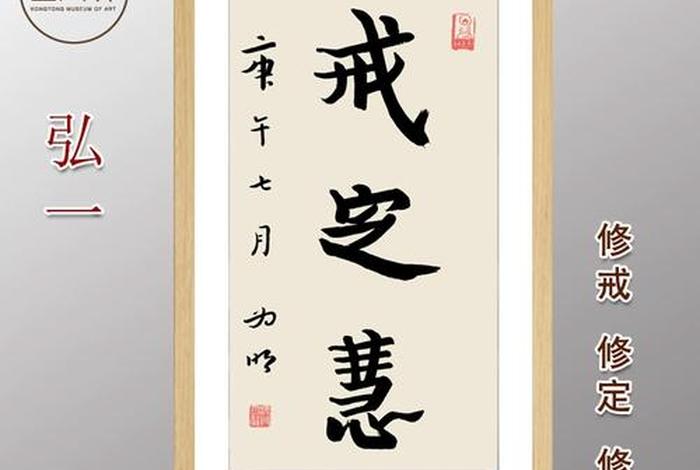 YONGTONG MUSEUM OF ART
弘一
戒定慧
庚午七月 为明
修戒 修定 修